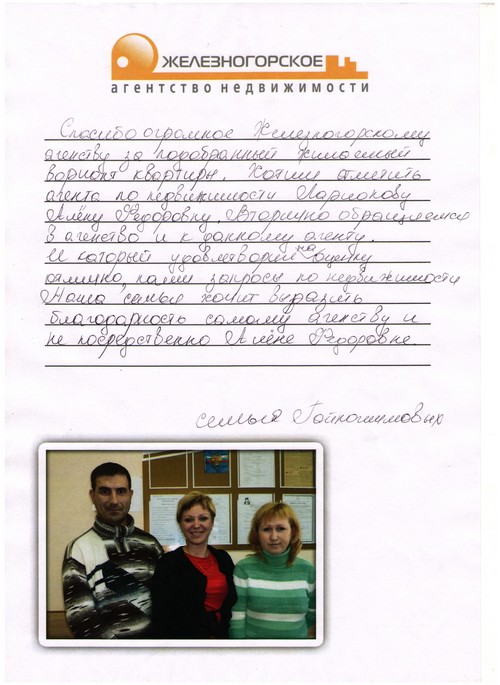 ЖЕЛЕЗНОГОРСКОЕ
агентство недвижимости
Спасибо огромное Железногорскому
агенству за подобранный желаемый
вариант квартиры. Хотим отметить
агента по недвижимости Ларионову
Алёну Фёдоровну. Вторично обращаемся
в агенство и к данному агенту.
И который удовлетворил на оценку
отлично наши запросы по недвижимости
Наша семья хочет выразить
благодарность самому агенству и
не посредственно Алёне Фёдоровне.
семья